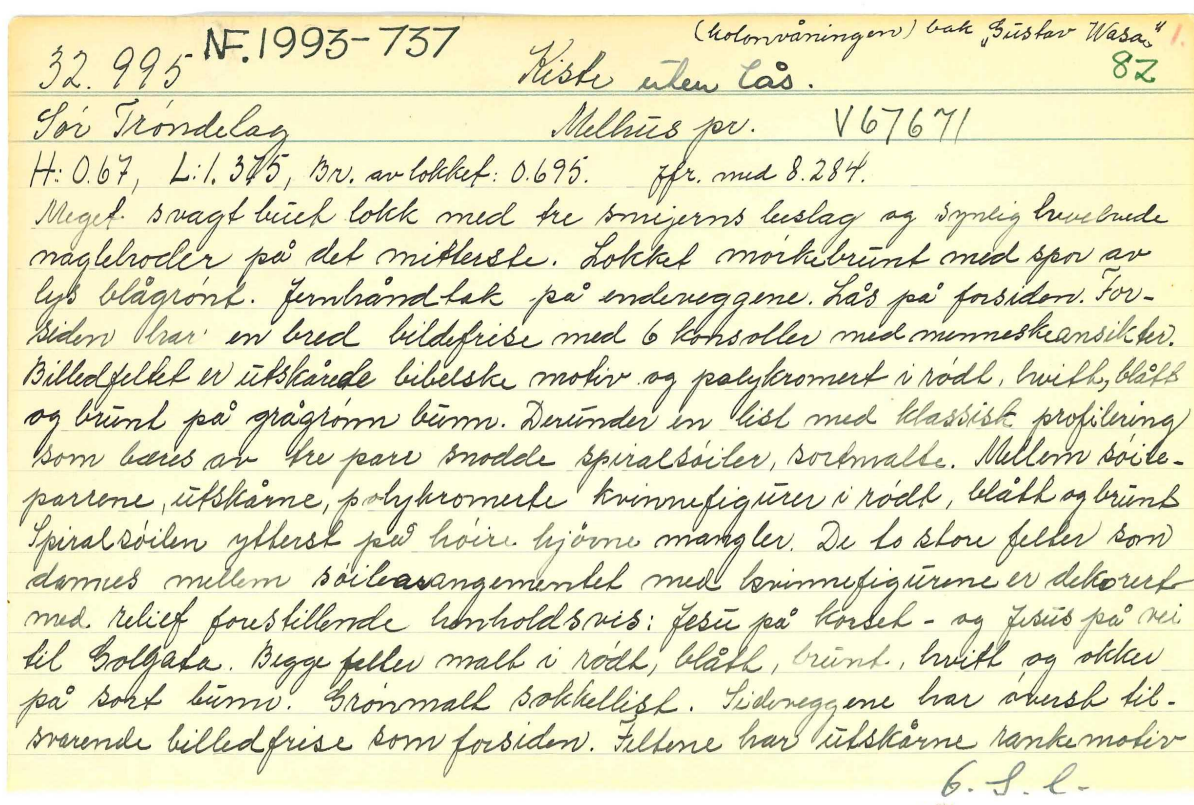 (kolonvåningen) bak „Gustav Wasa" 1.
NF.1993-737
32.995 Kiste uten lås. 82
Sør Trøndelag Melhus pr. V67671
H: 0.67, L: 1.375, Br. av lokket: 0.695. Jfr. med 8.284.
Meget svagt buet lokk med tre smijerns beslag og synlig hvelvede
naglehoder på det mitterste. Lokket mørkebrunt med spor av
lys blågrønt. Jernhåndtak på endeveggene. Lås på forsiden. For-
siden har en bred bildefrise med 6 konsoller med menneskeansikter.
Billedfeltet er utskårede bibelske motiv og polykromert i rødt, hvitt, blått
og brunt på grågrønn bunn. Derunder en list med klassisk profilering
som bæres av tre parr snodde spiralsøiler, sortmalte. Mellem søile-
parrene, utskårne, polykromerte kvinnefigurer i rødt, blått og brunt
Spiralsøilen ytterst på høire hjørne mangler. De to store felter som
dannes mellem søilearangementet med kvinnefigurene er dekorert
med relief forestillende henholdsvis: Jesu på korset - og Jesus på vei
til Golgata. Begge felter malt i rødt, blått, brunt, hvitt og okker
på sort bunn. Grønmalt sokkellist. Sideveggene har øverst til-
svarende billedfrise som forsiden. Feltene har utskårne rankemotiv
6. S. l.